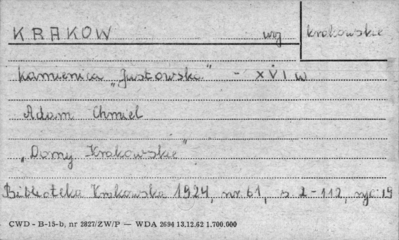 KRAKÓW woj krakowskie
kamienica "Justowska" - XVI w
Adam Chmiel
"Domy Krakowskie"
Biblioteka Krakowska 1924, nr. 61, s. 2-112, ryc 19
CWD - B-15-b, nr 2827/ZW/P — WDA 2694 13.12.62 1.700.000